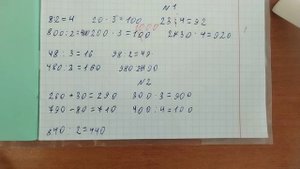 N1
82 = 4 20 · 5 = 100 23 · 4 = 92
800 : 2 = 400 200 · 5 = 1000 2430 · 4 = 920
48 : 3 = 16 98 : 2 = 49
480 : 3 = 160 980 : 2 = 490
N2
260 + 30 = 290 300 · 3 = 900
790 - 80 = 710 400 : 4 = 100
: 2 = 440